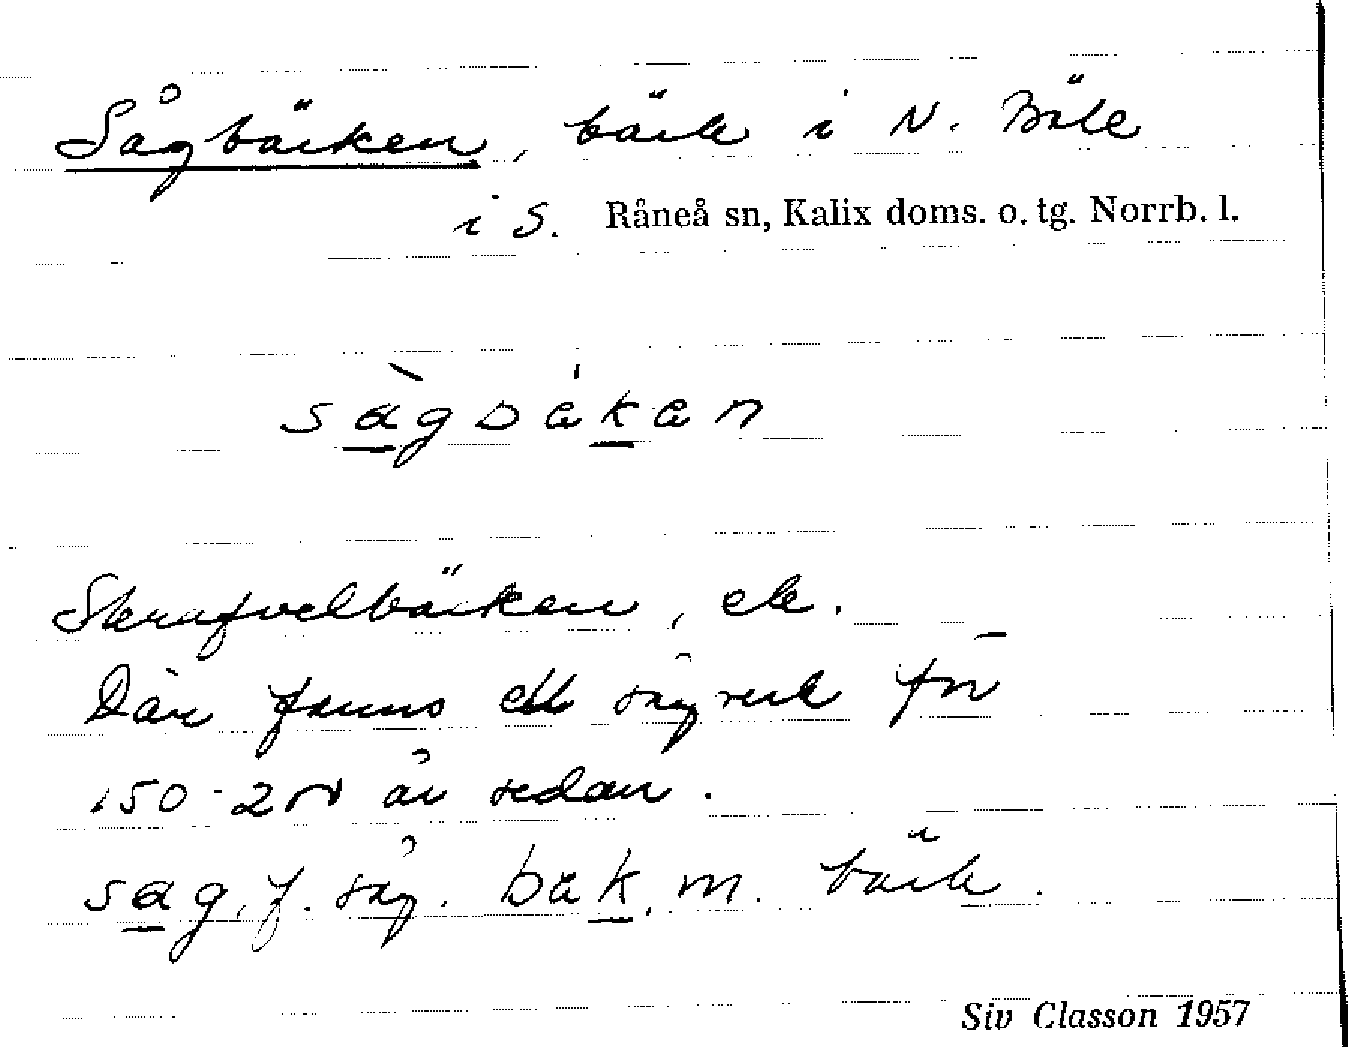 Sågbäcken, bäck i N. Böle
i S. Råneå sn, Kalix doms. o. tg. Norrb. l.
sàgbákan
bäcken, ek.
Där fanns ett sågverk för
150-200 år sedan.
sag, f. såg. bak, m. bäck.
Siv Classon 1957